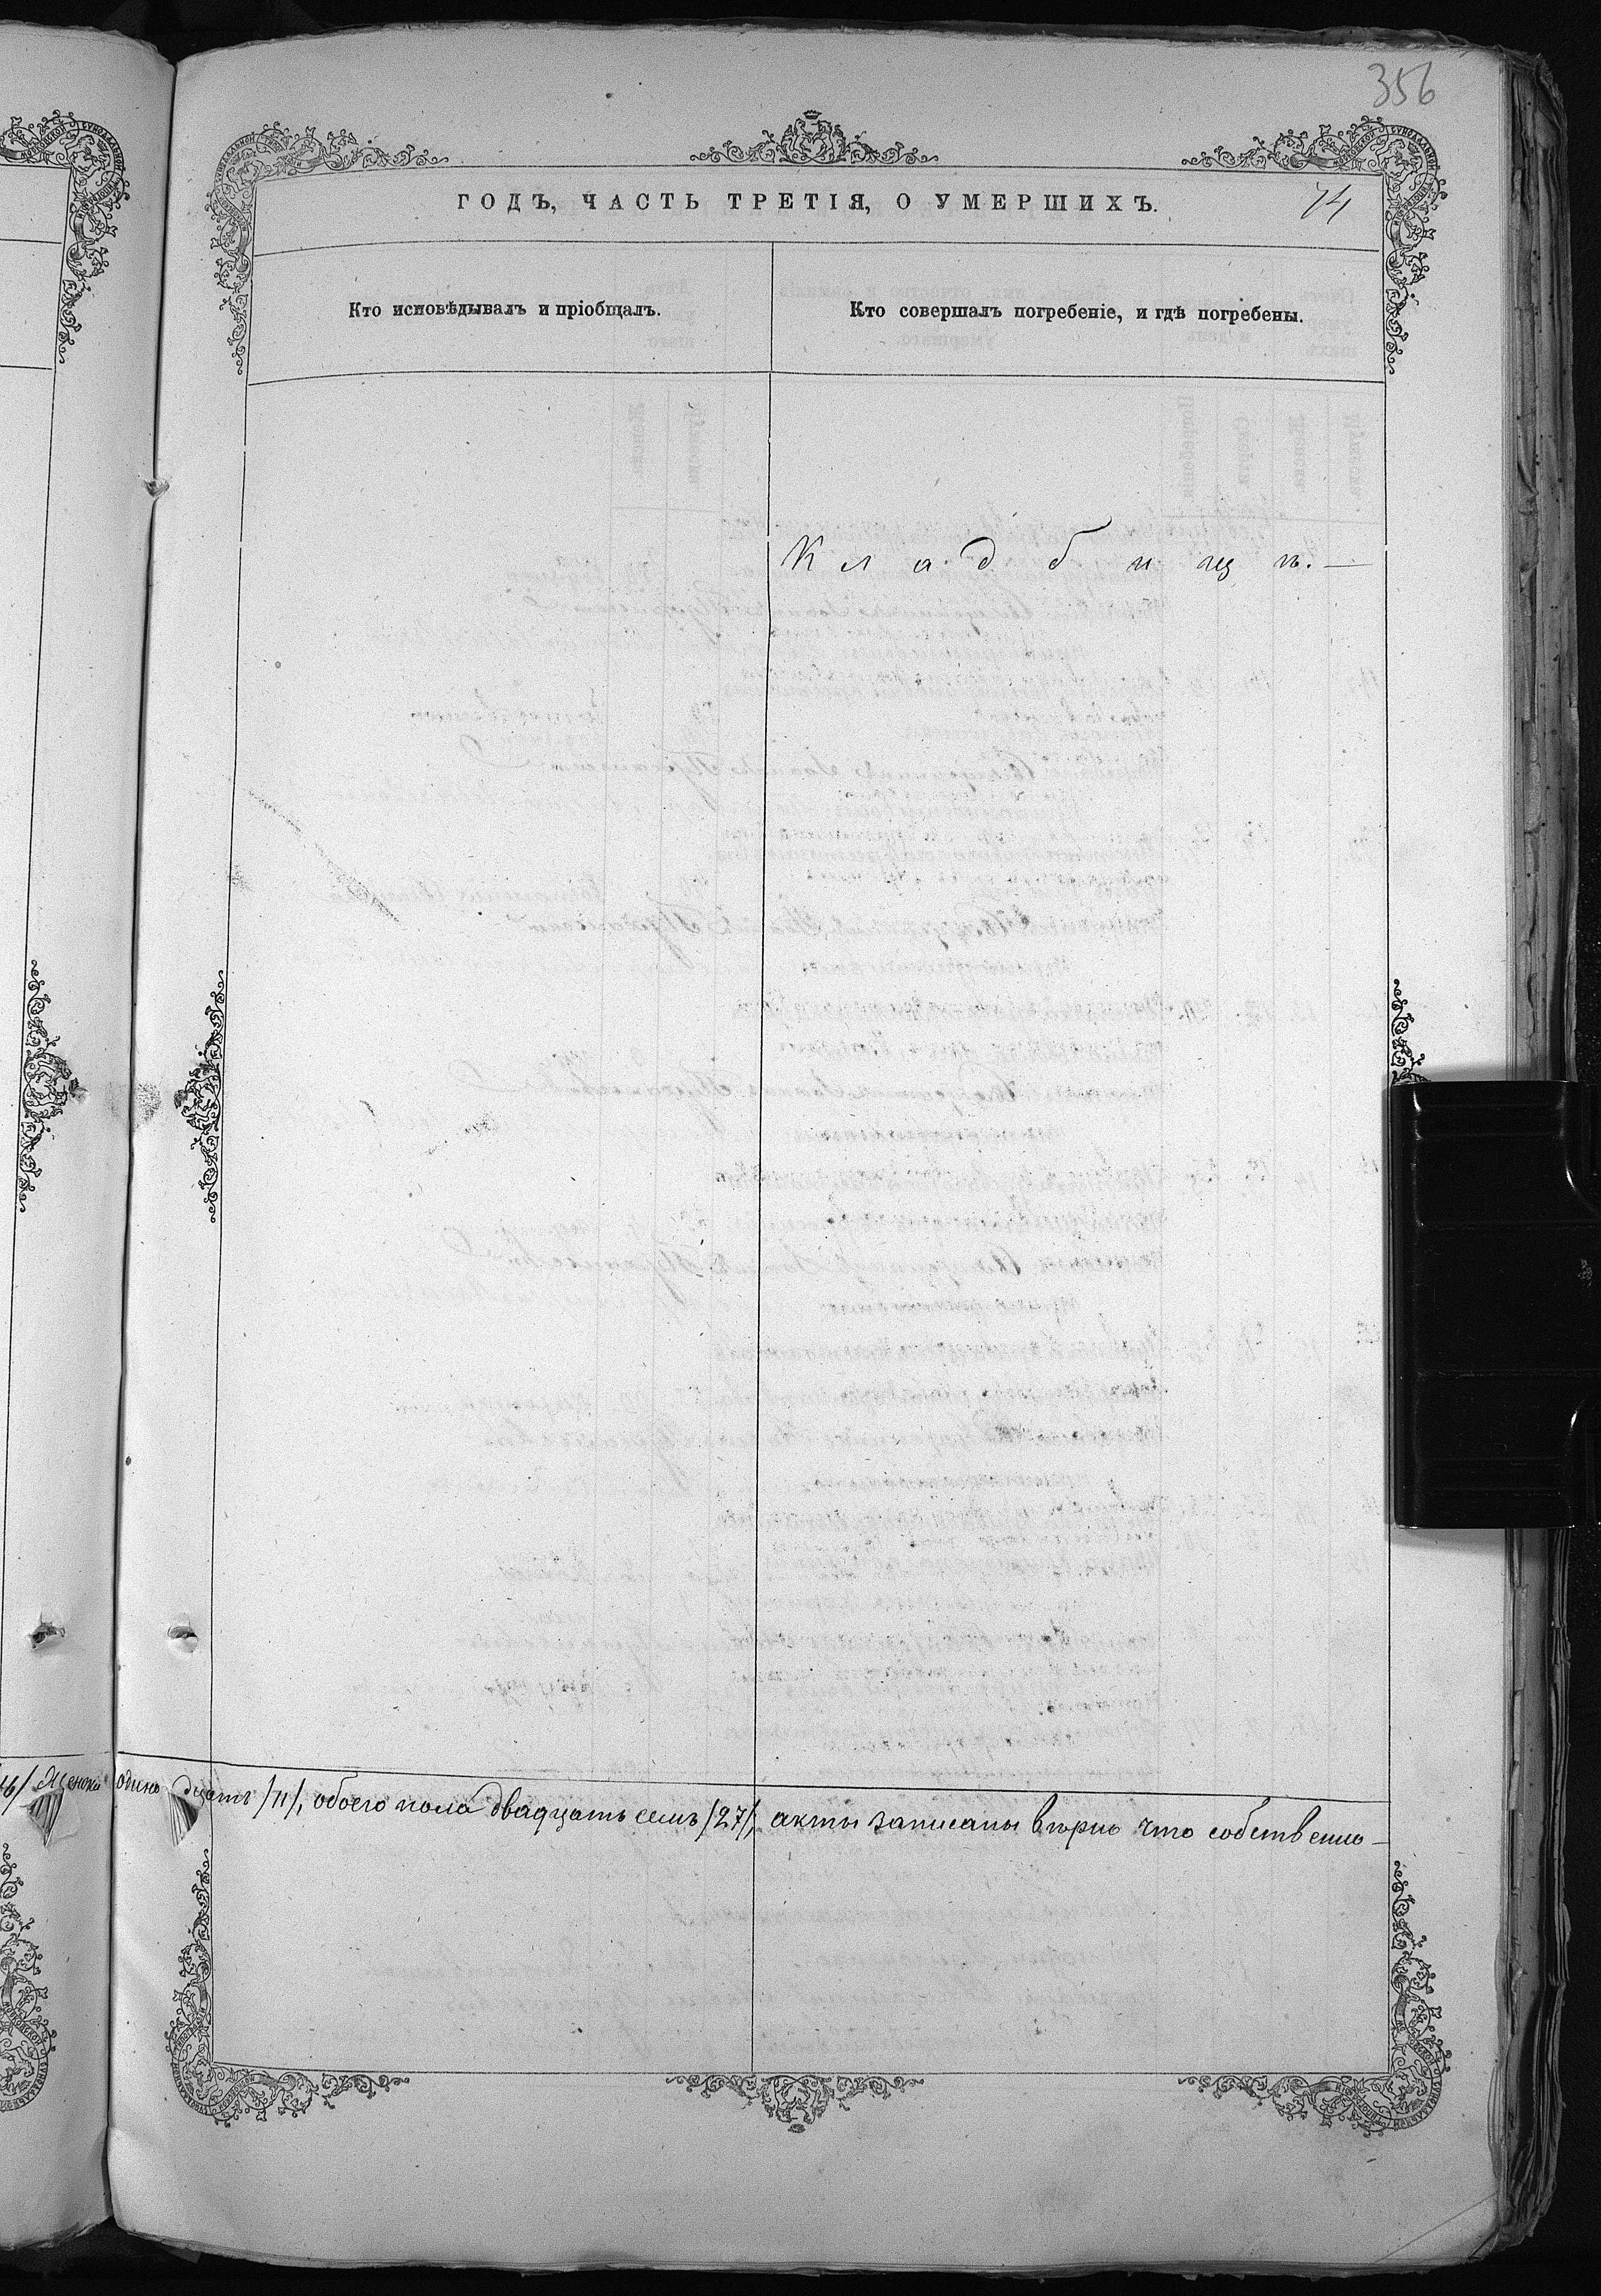 356
ГОДЪ, ЧАСТЬ ТРЕТІЯ, О УМЕРШИХЪ.
74
Кто исповѣдывалъ и пріобщалъ.
Кто совершалъ погребеніе, и гдѣ погребены.
Кладбищѣ.—
16/ Женска одинадцать /11/, обоего пола двадцать семь /27/, акты записаны вѣрно что собственно-